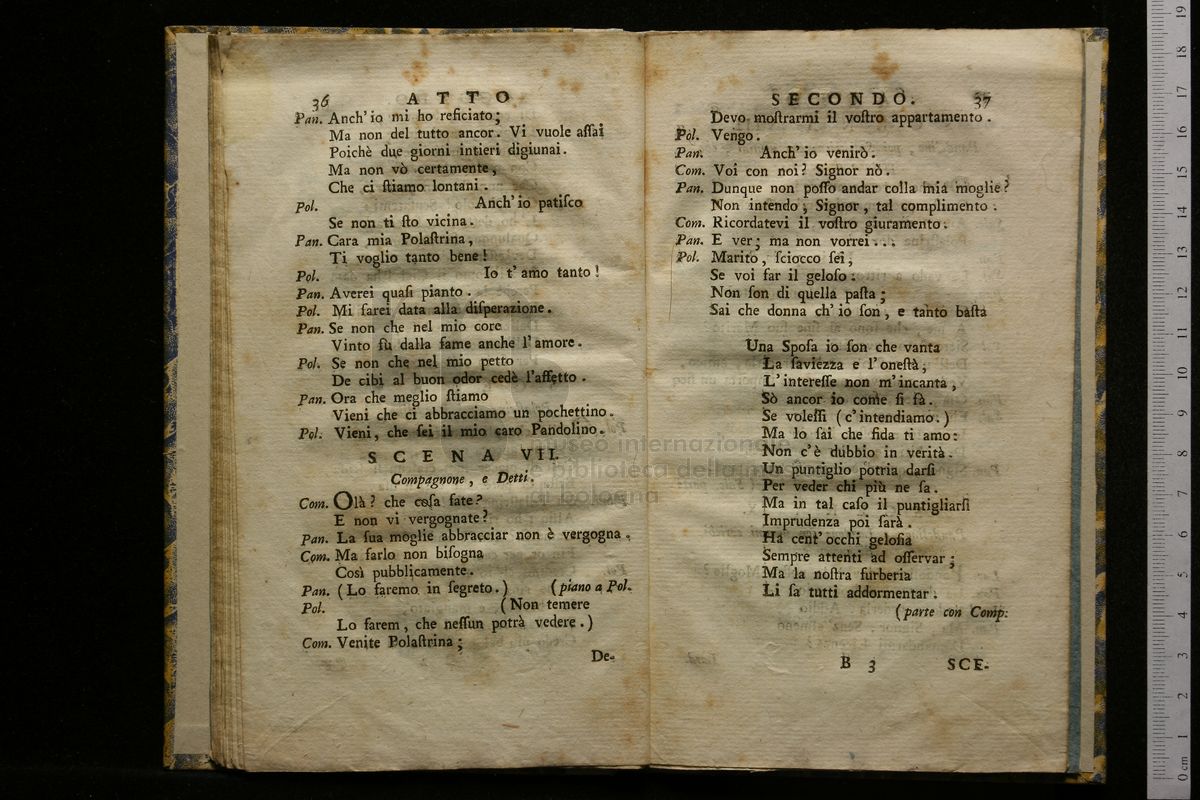 36 ATTO
Pan. Anch' io mi ho reficiato;
Ma non del tutto ancor. Vi vuole aſſai
Poichè due giorni intieri digiunai.
Ma non vò certamente,
Che ci ſtiamo lontani.
Pol. Anch' io patiſco
Se non ti ſto vicina.
Pan. Cara mia Polaſtrina,
Ti voglio tanto bene!
Pol. Io t' amo tanto!
Pan. Averei quaſi pianto.
Pol. Mi ſarei data alla diſperazione.
Pan. Se non che nel mio core
Vinto fù dalla fame anche l' amore.
Pol. Se non che nel mio petto
De cibi al buon odor cedè l'affetto.
Pan. Ora che meglio ſtiamo
Vieni che ci abbracciamo un pochettino.
Pol. Vieni, che ſei il mio caro Pandolino.
SCENA VII.
Compagnone, e Detti.
Com. Olà? che coſa fate?
E non vi vergognate?
Pan. La ſua moglie abbracciar non è vergogna.
Com. Ma farlo non biſogna
Così pubblicamente.
Pan. (Lo faremo in ſegreto.) (piano a Pol.
Pol. (Non temere
Lo farem, che neſſun potrà vedere.)
Com. Venite Polaſtrina;
De-
SECONDO. 37
Devo moſtrarmi il voſtro appartamento.
Pol. Vengo.
Pan. Anch' io venirò.
Com. Voi con noi? Signor nò.
Pan. Dunque non poſſo andar colla mia moglie?
Non intendo, Signor, tal complimento.
Com. Ricordatevi il voſtro giuramento.
Pan. E ver; ma non vorrei...
Pol. Marito, ſciocco ſei,
Se voi far il geloſo:
Non ſon di quella paſta;
Sai che donna ch' io ſon, e tanto baſta
Una Spoſa io ſon che vanta
La ſaviezza e l' oneſtà;
L' intereſſe non m' incanta,
Sò ancor io come ſi fà.
Se voleſſi (c' intendiamo.)
Ma lo ſai che fida ti amo:
Non c' è dubbio in verità.
Un puntiglio potria darſi
Per veder chi più ne ſa.
Ma in tal caſo il puntigliarſi
Imprudenza poi ſarà.
Ha cent' occhi geloſia
Sempre attenti ad oſſervar;
Ma la noſtra furberia
Li ſa tutti addormentar.
(parte con Comp:
B 3 SCE-
museo internazionale
e biblioteca della musica
di bologna